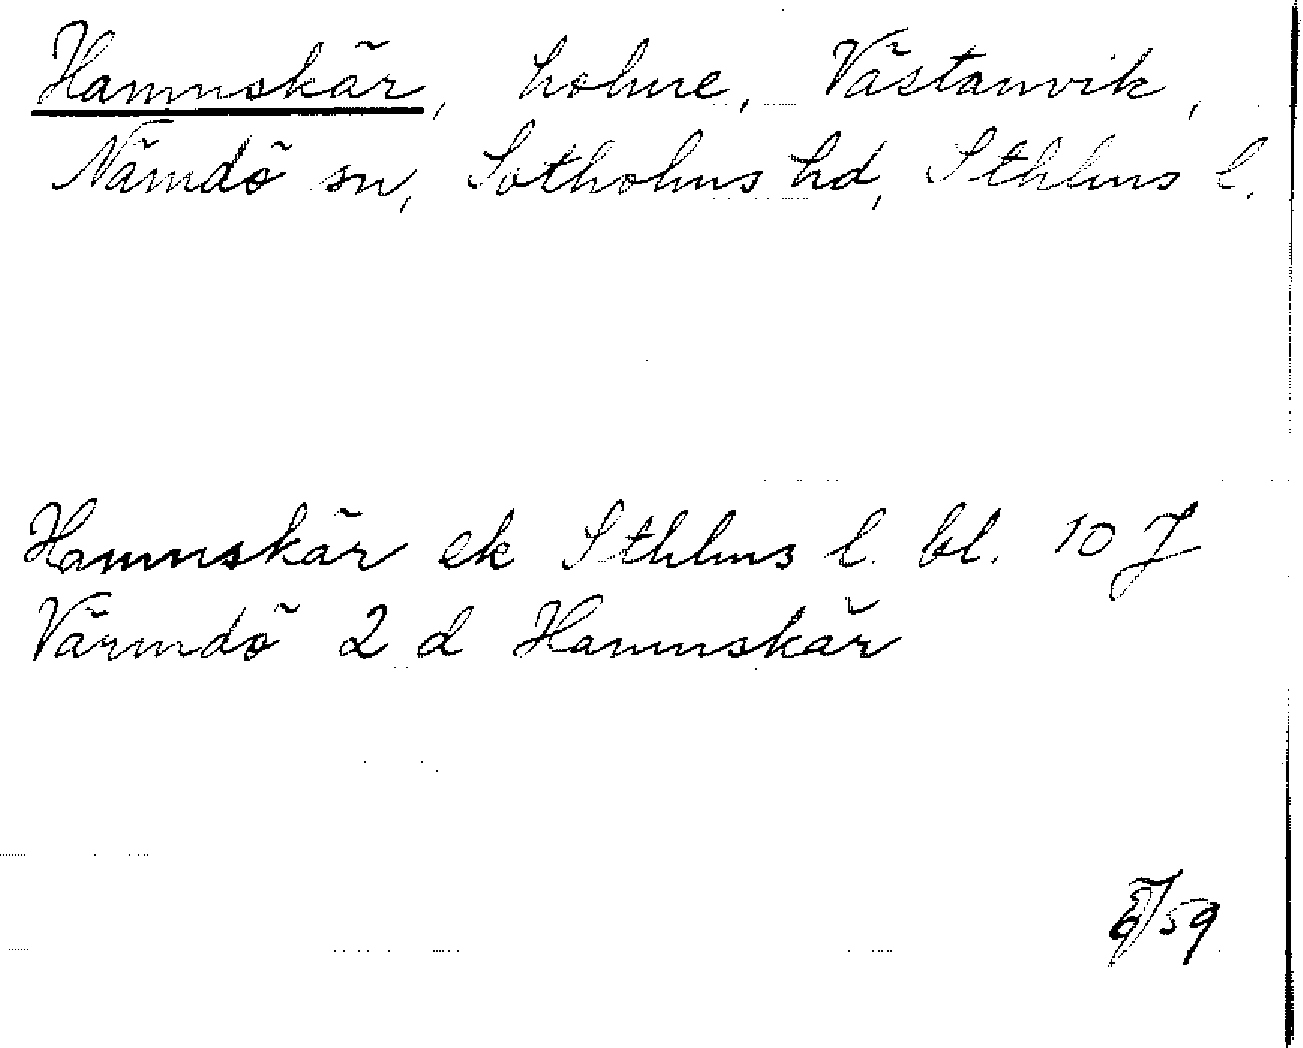 Hamnskär, holme, Västanvik,
Nämdö sn, Sotholms hd, Sthlms l.
Hamnskär ek Sthlms l. bl. 10 J
Värmdö 2 d Hamnskär
59